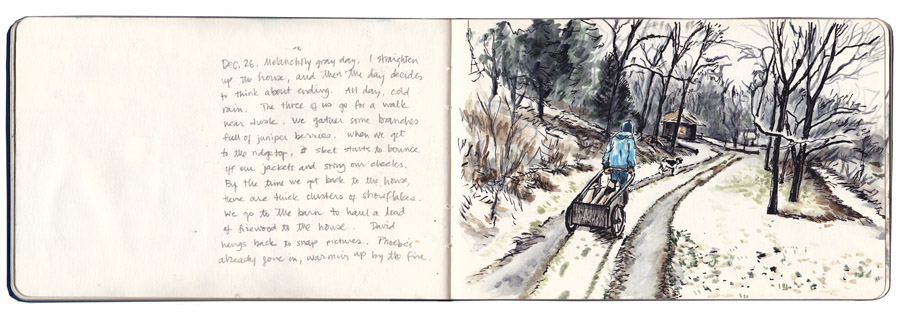 Dec. 26. Melancholy gray day. I straighten
up the house, and then the day decides
to think about ending. All day, cold
rain. The three of us go for a walk
near dusk. We gather some branches
full of juniper berries. When we get
to the ridgetop, sleet starts to bounce
off our jackets and sting our cheeks.
By the time we get back to the house,
there are thick clusters of snowflakes.
We go to the barn to haul a load
of firewood to the house. David
hangs back to snap pictures. Phoebe's
already gone in, warming up by the fire.